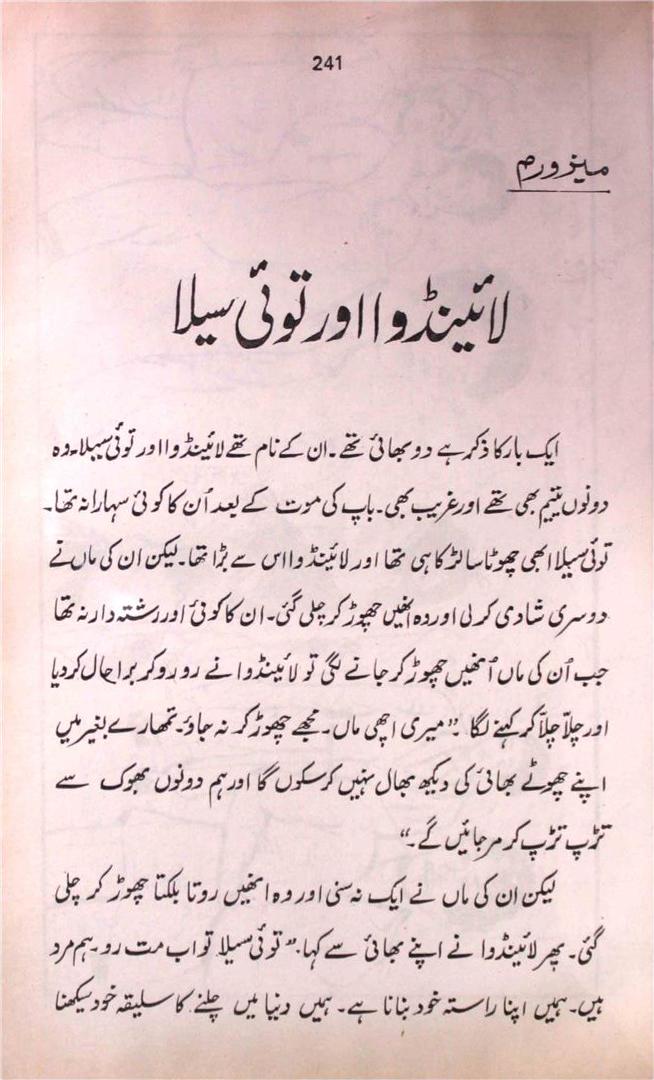 241
میزورم
لائینڈوا اور توئی سیلا
ایک بار کا ذکر ہے دو بھائی تھے۔ ان کے نام تھے لائینڈوا اور توئی سیلا۔ وہ
دونوں یتیم بھی تھے اور غریب بھی۔ باپ کی موت کے بعد اُن کا کوئی سہارا نہ تھا۔
توئی سیلا ابھی چھوٹا سا لڑکا ہی تھا اور لائینڈوا اس سے بڑا تھا۔ لیکن ان کی ماں نے
دوسری شادی کرلی اور وہ انھیں چھوڑ کر چلی گئی۔ ان کا کوئی اور رشتہ دار نہ تھا
جب اُن کی ماں اُنھیں چھوڑ کر جانے لگی تو لائینڈوا نے رو رو کر برا حال کر دیا
اور چلّا چلّا کر کہنے لگا۔ ”میری اچھی ماں۔ مجھے چھوڑ کر نہ جاؤ۔ تمھارے بغیر میں
اپنے چھوٹے بھائی کی دیکھ بھال نہیں کر سکوں گا اور ہم دونوں بھوک سے
تڑپ تڑپ کر مر جائیں گے۔“
لیکن ان کی ماں نے ایک نہ سنی اور وہ انھیں روتا بلکتا چھوڑ کر چلی
گئی۔ پھر لائینڈوا نے اپنے بھائی سے کہا۔ ”توئی سیلا تو اب مت رو۔ ہم مرد
ہیں۔ ہمیں اپنا راستہ خود بنانا ہے۔ ہمیں دنیا میں چلنے کا سلیقہ خود سیکھنا